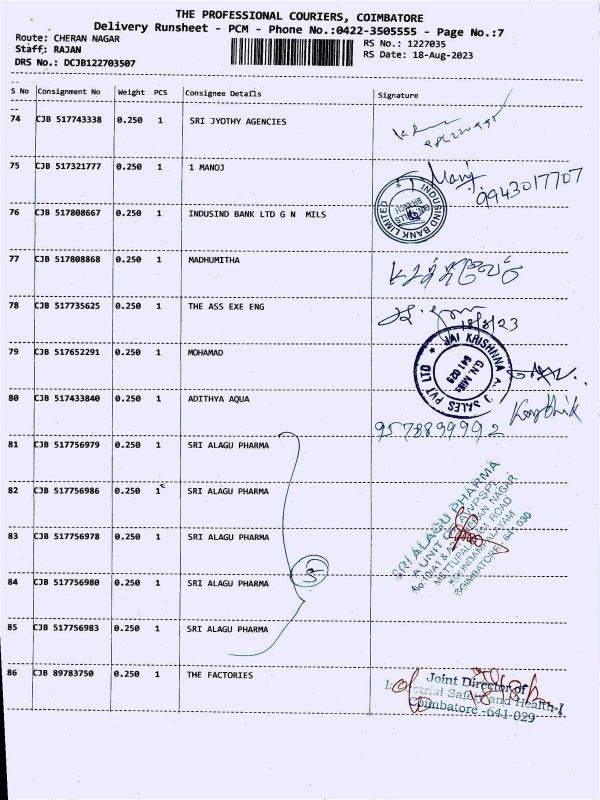 THE PROFESSIONAL COURIERS, COIMBATORE
Delivery Runsheet - PCM - Phone No.:0422-3505555 - Page No.:7
Route: CHERAN NAGAR
RS No.: 1227035
Staff: RAJAN
RS Date: 18-Aug-2023
DRS No.: DCJB122703507
S No Consignment No Weight PCS Consignee Details Signature
74 CJB 517743338 0.250 1 SRI JYOTHY AGENCIES
75 CJB 517321777 0.250 1 1 MANOJ
Manoj
9943017707
76 CJB 517808667 0.250 1 INDUSIND BANK LTD G N MILS
INDUSIND BANK LIMITED
77 CJB 517808868 0.250 1 MADHUMITHA
78 CJB 517735625 0.250 1 THE ASS EXE ENG
18/8/23
79 CJB 517652291 0.250 1 MOHAMAD
JAI KRISHNNA A J SALES PVT LTD
G.N. Mills
641 029
80 CJB 517433840 0.250 1 ADITHYA AQUA
Karthik
9578899992
81 CJB 517756979 0.250 1 SRI ALAGU PHARMA
82 CJB 517756986 0.250 1 SRI ALAGU PHARMA
83 CJB 517756978 0.250 1 SRI ALAGU PHARMA
84 CJB 517756980 0.250 1 SRI ALAGU PHARMA
5
85 CJB 517756983 0.250 1 SRI ALAGU PHARMA
SRI ALAGU PHARMA
A UNIT OF
CHERAN NAGAR
METTUPALAYAM ROAD
KOUNDAMPALAYAM
COIMBATORE - 641 030
86 CJB 89783750 0.250 1 THE FACTORIES
Joint Director of
Industrial Safety and Health-I
Coimbatore -641-029